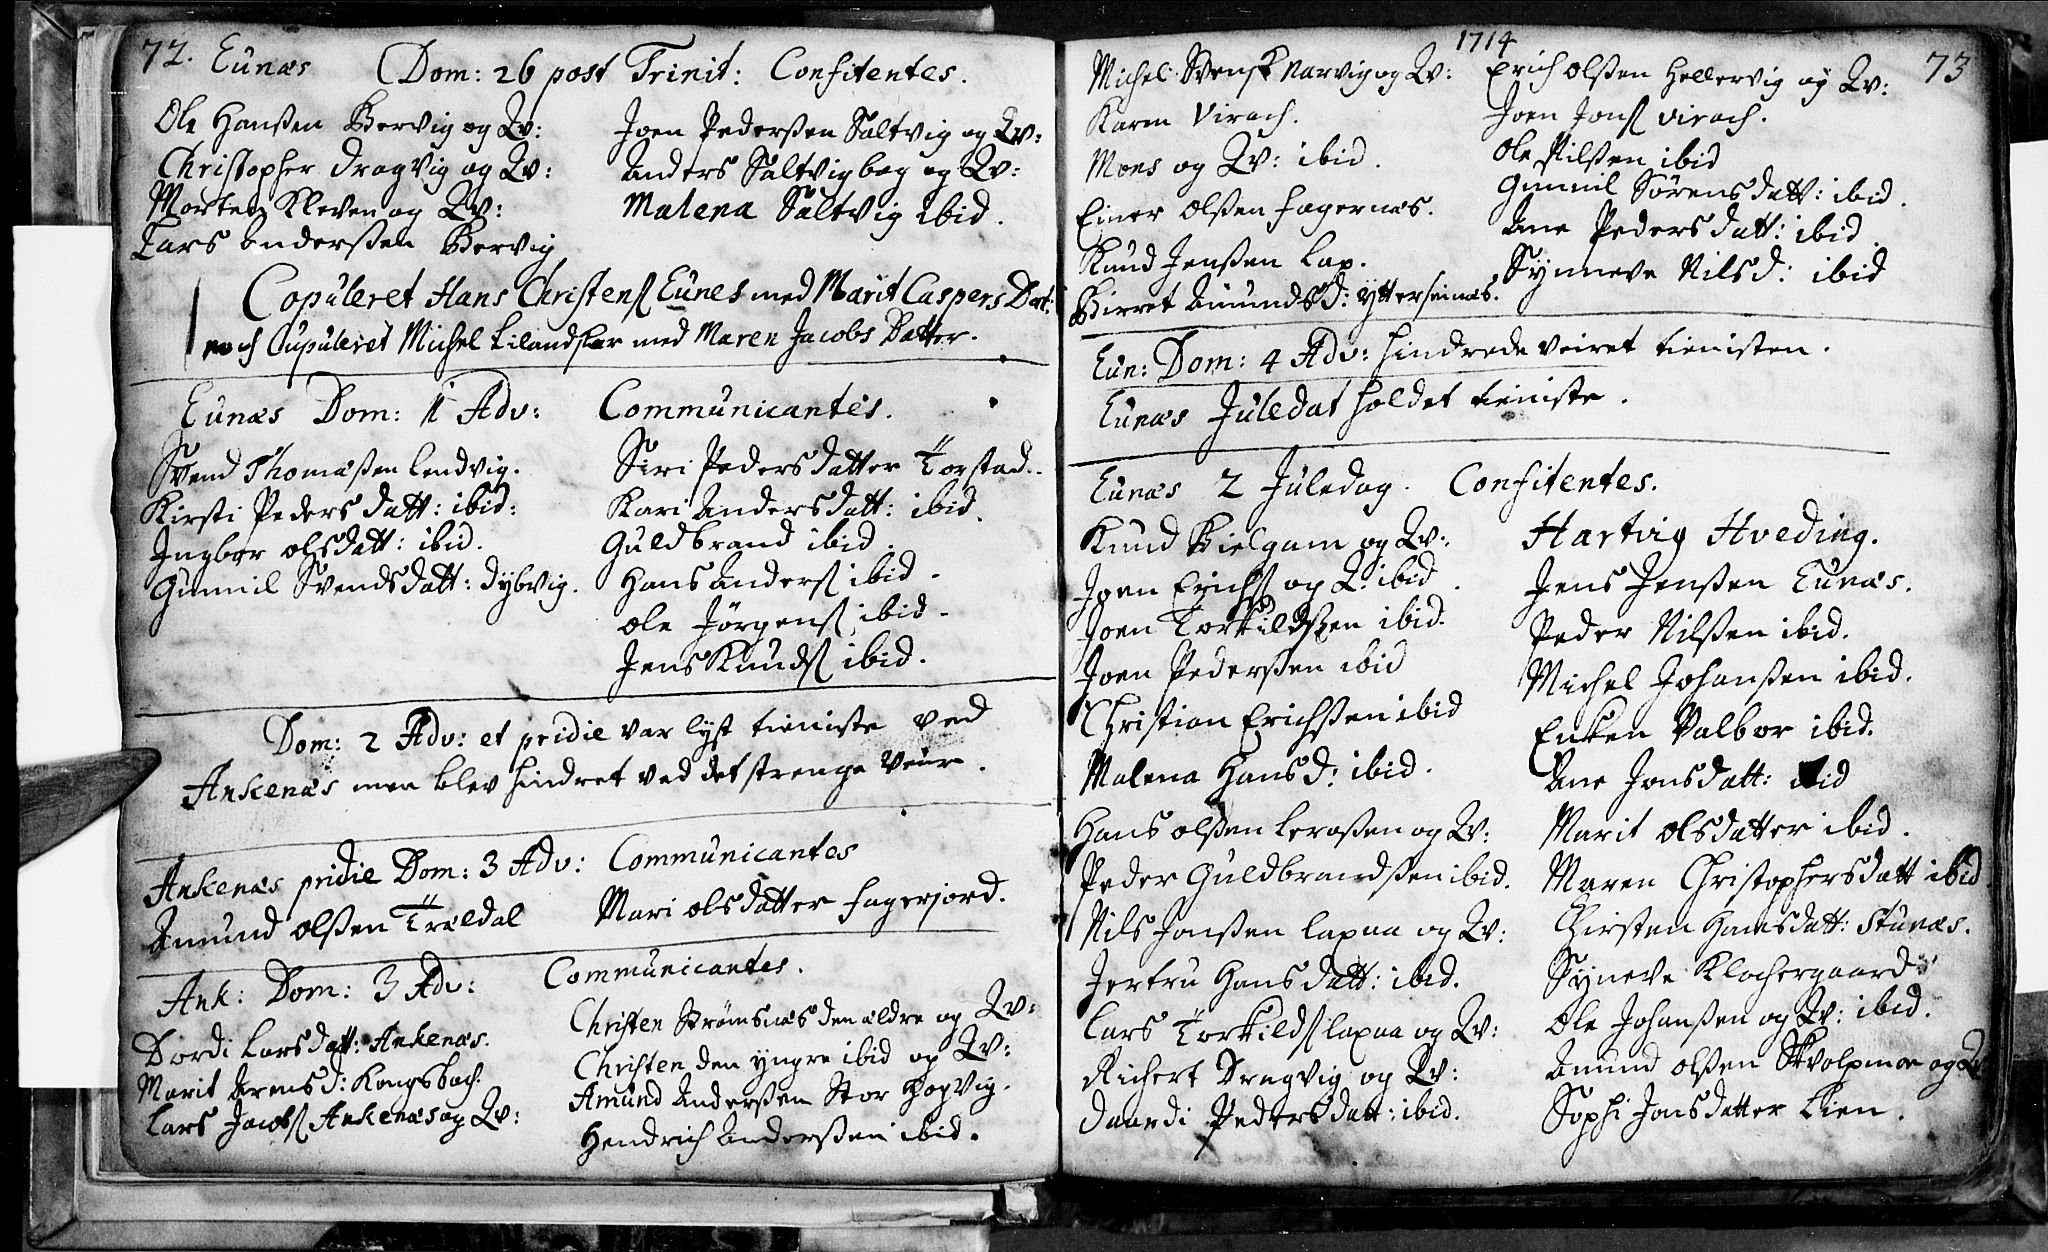 72. Eunæs Dom: 26 post Trinit: Confitentes.
Ole Hanßen Bervig og Qv:
Christopher Dragvig og Qv:
Morten Kleven og Qv:
Lars Anderßen Bervig
Joen Pederßen Saltvig og Qv:
Anders Saltvigbog og Qv:
Malena Saltvig ibid.
Copuleret Hans Christens Eunes med Marit Caspers Dat:
noch Cupuleret Michel Lilandskar med Maren Jacobs Datter.
Eunæs Dom: 1 Adv: Communicantes.
Svend Thomæßen Lendvig.
Kirsti Peders datt: ibid:
Ingbor olsdatt: ibid.
Gunnil Svendsdatt: Dybvig.
Siri Pedersdatter Torstad.
Kari Andersdatt: ibid.
Guldbrand ibid.
Hans Anders ibid.
Ole Jørgens ibid.
Jens Knuds ibid.
Dom: 2 Adv: et pridie var lyst tieniste ved
Ankenæs men blev hindret ved det strenge Veir.
Ankenæs pridie Dom: 3 Adv: Communicantes
Amund olßen Trældal
Mari olsdatter Fagerjord.
Ank: Dom: 3 Adv: Communicantes.
Dordi Larsdatt: Ankenæs.
Marit Arensd: Kongsbach.
Lars Jacobs Ankenæs og Qv:
Christen Strømsnæs den ældre og Qv:
Christen den yngre ibid og Qv:
Amund Anderßen Stor Hogvig.
Hendrich Anderßen ibid.
1714
73
Michel Svensk Narvig og Qv:
Karen Virach.
Mons og Qv: ibid.
Einer Olßen Fagernæs.
Knud Jenßen Lax.
Birret Amundsd: ytterseinæs.
Erich Olßen Hellervig og Qv:
Joen Jons Virach.
Ole Nilßen ibid
Gunnil Sørensdatt: ibid.
Ane Pedersdatt: ibid.
Synneve Nilsd: ibid
Eun: Dom: 4 Adv: hindrede veiret tienisten.
Eunæs Juledat holdet tieniste.
Eunæs 2 Juledag. Confitentes.
Knud Bielgam og Qv:
Joen Erichs og Q: ibid.
Joen Torkildßen ibid.
Joen Pederßen ibid
Christian Erichßen ibid
Malena Hansd: ibid.
Hans olßen Leroßen og Qv:
Peder Guldbrandßen ibid.
Nils Jonßen Laxaa og Qv:
Jertru Hansdatt: ibid.
Lars Torkilds Laxaa og Qv:
Richert Dragvig og Qv:
Daardi Pedersdatt: ibid.
Hartvig Hveding.
Jens Jenßen Eunæs.
Peder Nilßen ibid.
Michel Johanßen ibid.
Enken Valbor ibid.
Ane Jonsdatt: ibid
Marit olsdatter ibid.
Maren Christophersdatt ibid
Chirsten Hansdatt: Stunæs.
Syneve Klochergaard
Ole Johanßen og Qv: ibid.
Amund olßen Skolpmoe og Qv
Sophi Jonsdatter Lien.